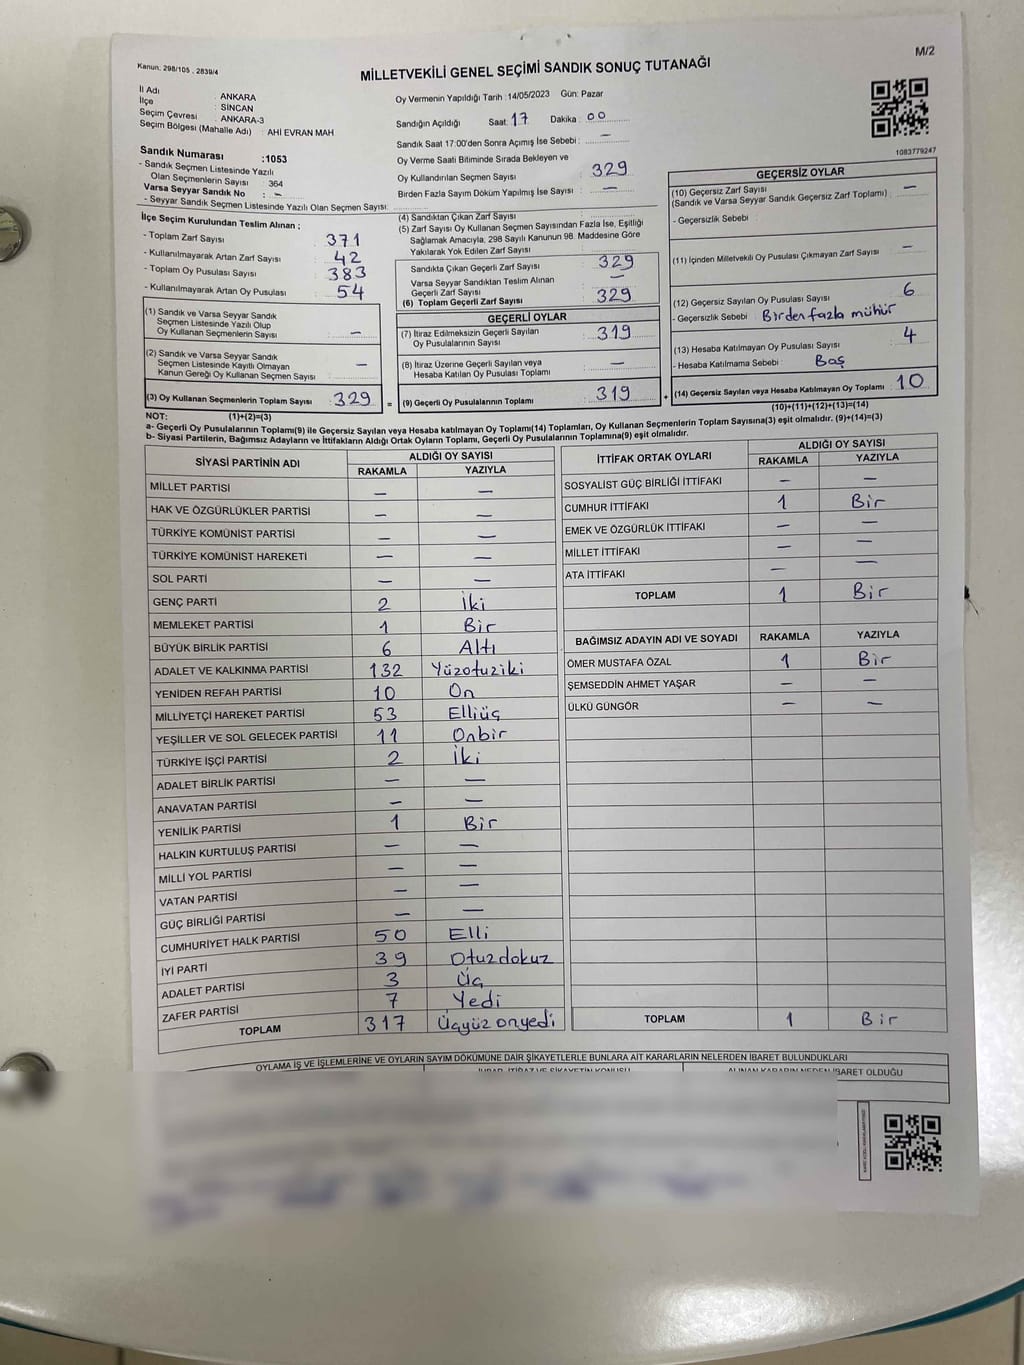 M/2
Kanun. 298/105 , 2839/4
MİLLETVEKİLİ GENEL SEÇİMİ SANDIK SONUÇ TUTANAĞI
İl Adı : ANKARA
İlçe : SİNCAN
Seçim Çevresi : ANKARA-3
Seçim Bölgesi (Mahalle Adı) : AHİ EVRAN MAH
Sandık Numarası :1053
- Sandık Seçmen Listesinde Yazılı
Olan Seçmenlerin Sayısı : 364
Varsa Seyyar Sandık No : –
- Seyyar Sandık Seçmen Listesinde Yazılı Olan Seçmen Sayısı:
Oy Vermenin Yapıldığı Tarih :14/05/2023 Gün: Pazar
Sandığın Açıldığı Saat: 17 Dakika : 00
Sandık Saat 17:00'den Sonra Açımış İse Sebebi : —
Oy Verme Saati Bitiminde Sırada Bekleyen ve
Oy Kullandırılan Seçmen Sayısı : 329
Birden Fazla Sayım Döküm Yapılmış İse Sayısı : —
1083779247
İlçe Seçim Kurulundan Teslim Alınan ;
- Toplam Zarf Sayısı : 371
- Kullanılmayarak Artan Zarf Sayısı : 42
- Toplam Oy Pusulası Sayısı : 383
- Kullanılmayarak Artan Oy Pusulası : 54
(1) Sandık ve Varsa Seyyar Sandık
Seçmen Listesinde Yazılı Olup
Oy Kullanan Seçmenlerin Sayısı : —
(2) Sandık ve Varsa Seyyar Sandık
Seçmen Listesinde Kayıtlı Olmayan
Kanun Gereği Oy Kullanan Seçmen Sayısı : —
(3) Oy Kullanan Seçmenlerin Toplam Sayısı : 329 =
(4) Sandıktan Çıkan Zarf Sayısı :
(5) Zarf Sayısı Oy Kullanan Seçmen Sayısından Fazla İse, Eşitliği
Sağlamak Amacıyla, 298 Sayılı Kanunun 98. Maddesine Göre
Yakılarak Yok Edilen Zarf Sayısı :
Sandıkta Çıkan Geçerli Zarf Sayısı : 329
Varsa Seyyar Sandıktan Teslim Alınan
Geçerli Zarf Sayısı : —
(6) Toplam Geçerli Zarf Sayısı : 329
GEÇERLİ OYLAR
(7) İtiraz Edilmeksizin Geçerli Sayılan
Oy Pusulalarının Sayısı : 319
(8) İtiraz Üzerine Geçerli Sayılan veya
Hesaba Katılan Oy Pusulası Toplamı : —
(9) Geçerli Oy Pusulalarının Toplamı : 319 +
GEÇERSİZ OYLAR
(10) Geçersiz Zarf Sayısı : —
(Sandık ve Varsa Seyyar Sandık Geçersiz Zarf Toplamı)
- Geçersizlik Sebebi :
(11) İçinden Milletvekili Oy Pusulası Çıkmayan Zarf Sayısı : —
(12) Geçersiz Sayılan Oy Pusulası Sayısı : 6
- Geçersizlik Sebebi : Birden fazla mühür
(13) Hesaba Katılmayan Oy Pusulası Sayısı : 4
- Hesaba Katılmama Sebebi : Boş
(14) Geçersiz Sayılan veya Hesaba Katılmayan Oy Toplamı : 10
NOT: (1)+(2)=(3)
(10)+(11)+(12)+(13)=(14)
a- Geçerli Oy Pusulalarının Toplamı(9) ile Geçersiz Sayılan veya Hesaba katılmayan Oy Toplamı(14) Toplamları, Oy Kullanan Seçmenlerin Toplam Sayısına(3) eşit olmalıdır. (9)+(14)=(3)
b- Siyasi Partilerin, Bağımsız Adayların ve İttifakların Aldığı Ortak Oyların Toplamı, Geçerli Oy Pusulalarının Toplamına(9) eşit olmalıdır.
SİYASİ PARTİNİN ADI ALDIĞI OY SAYISI
RAKAMLA YAZIYLA
MİLLET PARTİSİ — —
HAK VE ÖZGÜRLÜKLER PARTİSİ — —
TÜRKİYE KOMÜNİST PARTİSİ — —
TÜRKİYE KOMÜNİST HAREKETİ — —
SOL PARTİ — —
GENÇ PARTİ 2 İki
MEMLEKET PARTİSİ 1 Bir
BÜYÜK BİRLİK PARTİSİ 6 Altı
ADALET VE KALKINMA PARTİSİ 132 Yüzotuziki
YENİDEN REFAH PARTİSİ 10 On
MİLLİYETÇİ HAREKET PARTİSİ 53 Elliüç
YEŞİLLER VE SOL GELECEK PARTİSİ 11 Onbir
TÜRKİYE İŞÇİ PARTİSİ 2 İki
ADALET BİRLİK PARTİSİ — —
ANAVATAN PARTİSİ — —
YENİLİK PARTİSİ 1 Bir
HALKIN KURTULUŞ PARTİSİ — —
MİLLİ YOL PARTİSİ — —
VATAN PARTİSİ — —
GÜÇ BİRLİĞİ PARTİSİ — —
CUMHURİYET HALK PARTİSİ 50 Elli
İYİ PARTİ 39 Otuzdokuz
ADALET PARTİSİ 3 Üç
ZAFER PARTİSİ 7 Yedi
TOPLAM 317 Üçyüz onyedi
İTTİFAK ORTAK OYLARI ALDIĞI OY SAYISI
RAKAMLA YAZIYLA
SOSYALİST GÜÇ BİRLİĞİ İTTİFAKI — —
CUMHUR İTTİFAKI 1 Bir
EMEK VE ÖZGÜRLÜK İTTİFAKI — —
MİLLET İTTİFAKI — —
ATA İTTİFAKI — —
TOPLAM 1 Bir
BAĞIMSIZ ADAYIN ADI VE SOYADI RAKAMLA YAZIYLA
ÖMER MUSTAFA ÖZAL 1 Bir
ŞEMSEDDİN AHMET YAŞAR — —
ÜLKÜ GÜNGÖR — —
TOPLAM 1 Bir
OYLAMA İŞ VE İŞLEMLERİNE VE OYLARIN SAYIM DÖKÜMÜNE DAİR ŞİKAYETLERLE BUNLARA AİT KARARLARIN NELERDEN İBARET BULUNDUKLARI
İTİRAZ VE ŞİKAYETİN KONUSU ALINAN KARARIN NEDEN İBARET OLDUĞU